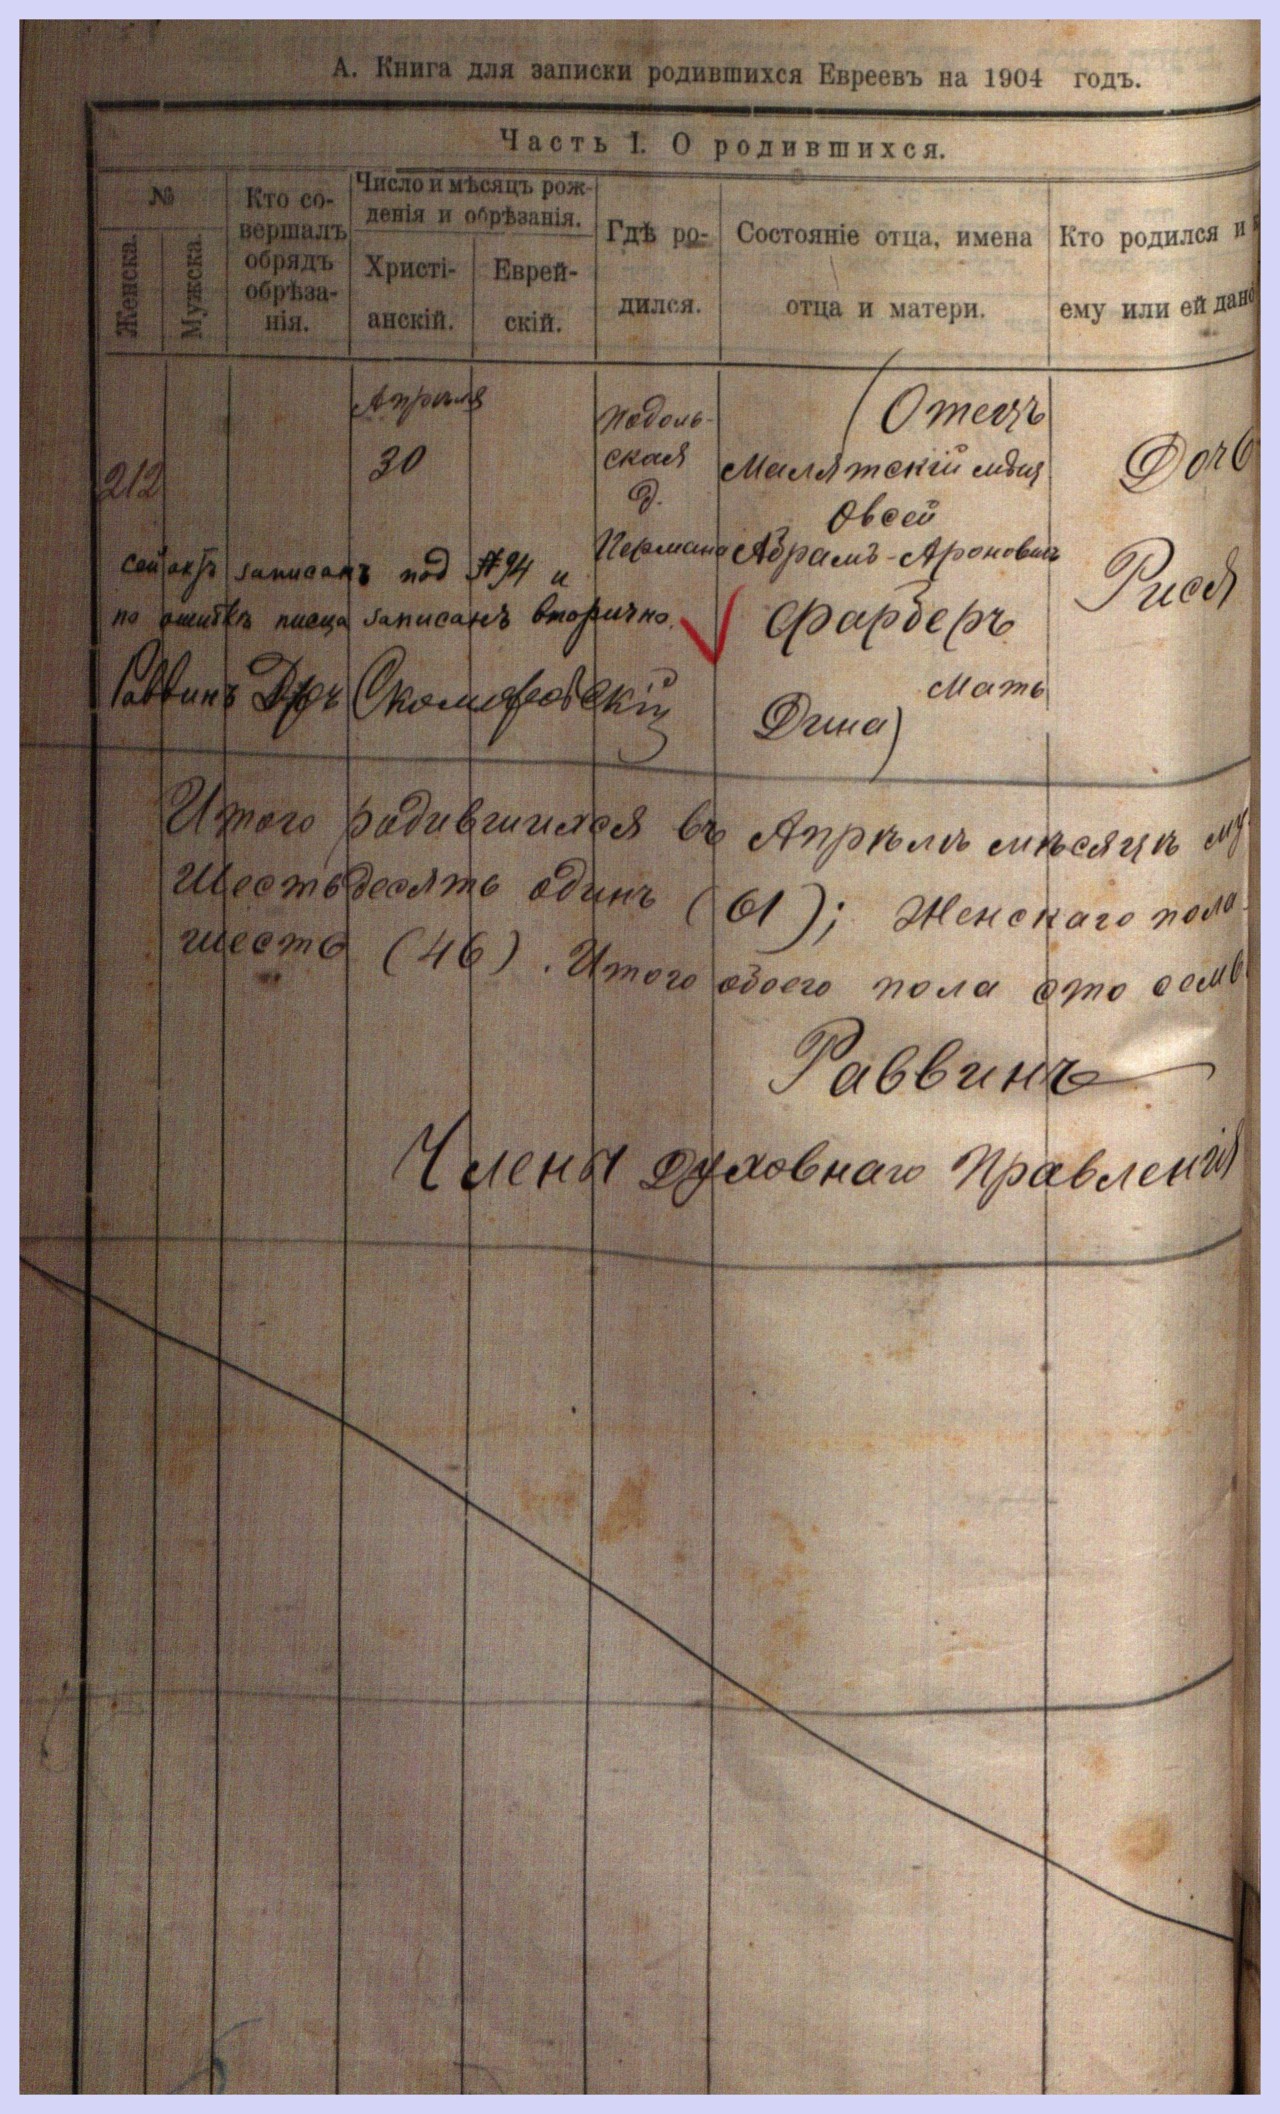 А. Книга для записки родившихся Евреевъ на 1904 годъ.
Часть I. О родившихся.
№
Женска.
Мужска.
Кто со-
вершалъ
обрядъ
обрѣза-
нія.
Число и мѣсяцъ рож-
денія и обрѣзанія.
Христі-
анскій.
Еврей-
скій.
Гдѣ ро-
дился.
Состояніе отца, имена
отца и матери.
Кто родился и
ему или ей дано
212
Апрѣля
30
Подоль-
ская
д.
(Отецъ
Малятскій мѣщ
Овсей
Абрамъ-Ароновичъ
Фарберъ
Мать
Дина)
Дочь
Рися
Сей актъ записанъ под №94 и
по ошибкѣ писца записанъ вторично.
Раввинъ Дръ Скоморовскій
Итого родившихся въ Апрѣлѣ мѣсяцѣ му
шестьдесятъ одинъ (61); Женскаго пола
шесть (46). Итого обоего пола сто семь
Раввинъ
Члены Духовнаго Правленія